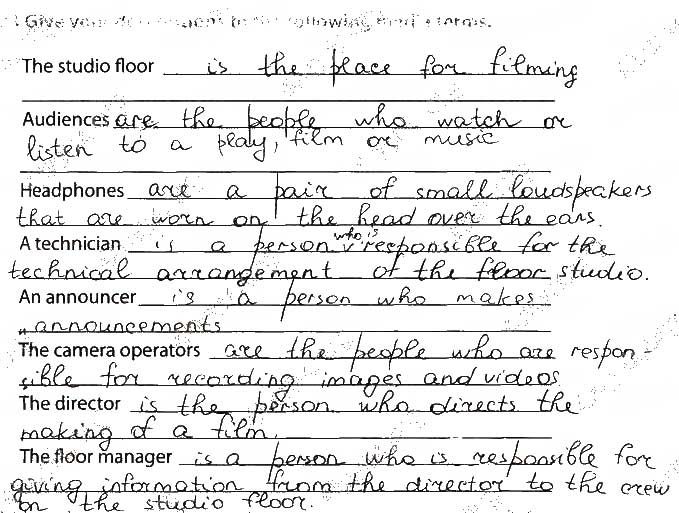 Give your to the following terms.
The studio floor is the place for filming
Audiences are the people who watch or
listen to a play, film or music
Headphones are a pair of small loudspeakers
that are worn on the head over the ears.
A technician is a person who is responsible for the
technical arrangement of the floor studio.
An announcer is a person who makes
announcements
The camera operators are the people who are respon-
sible for recording images and videos
The director is the person who directs the
making of a film.
The floor manager is a person who is responsible for
giving information from the director to the crew
on the studio floor.